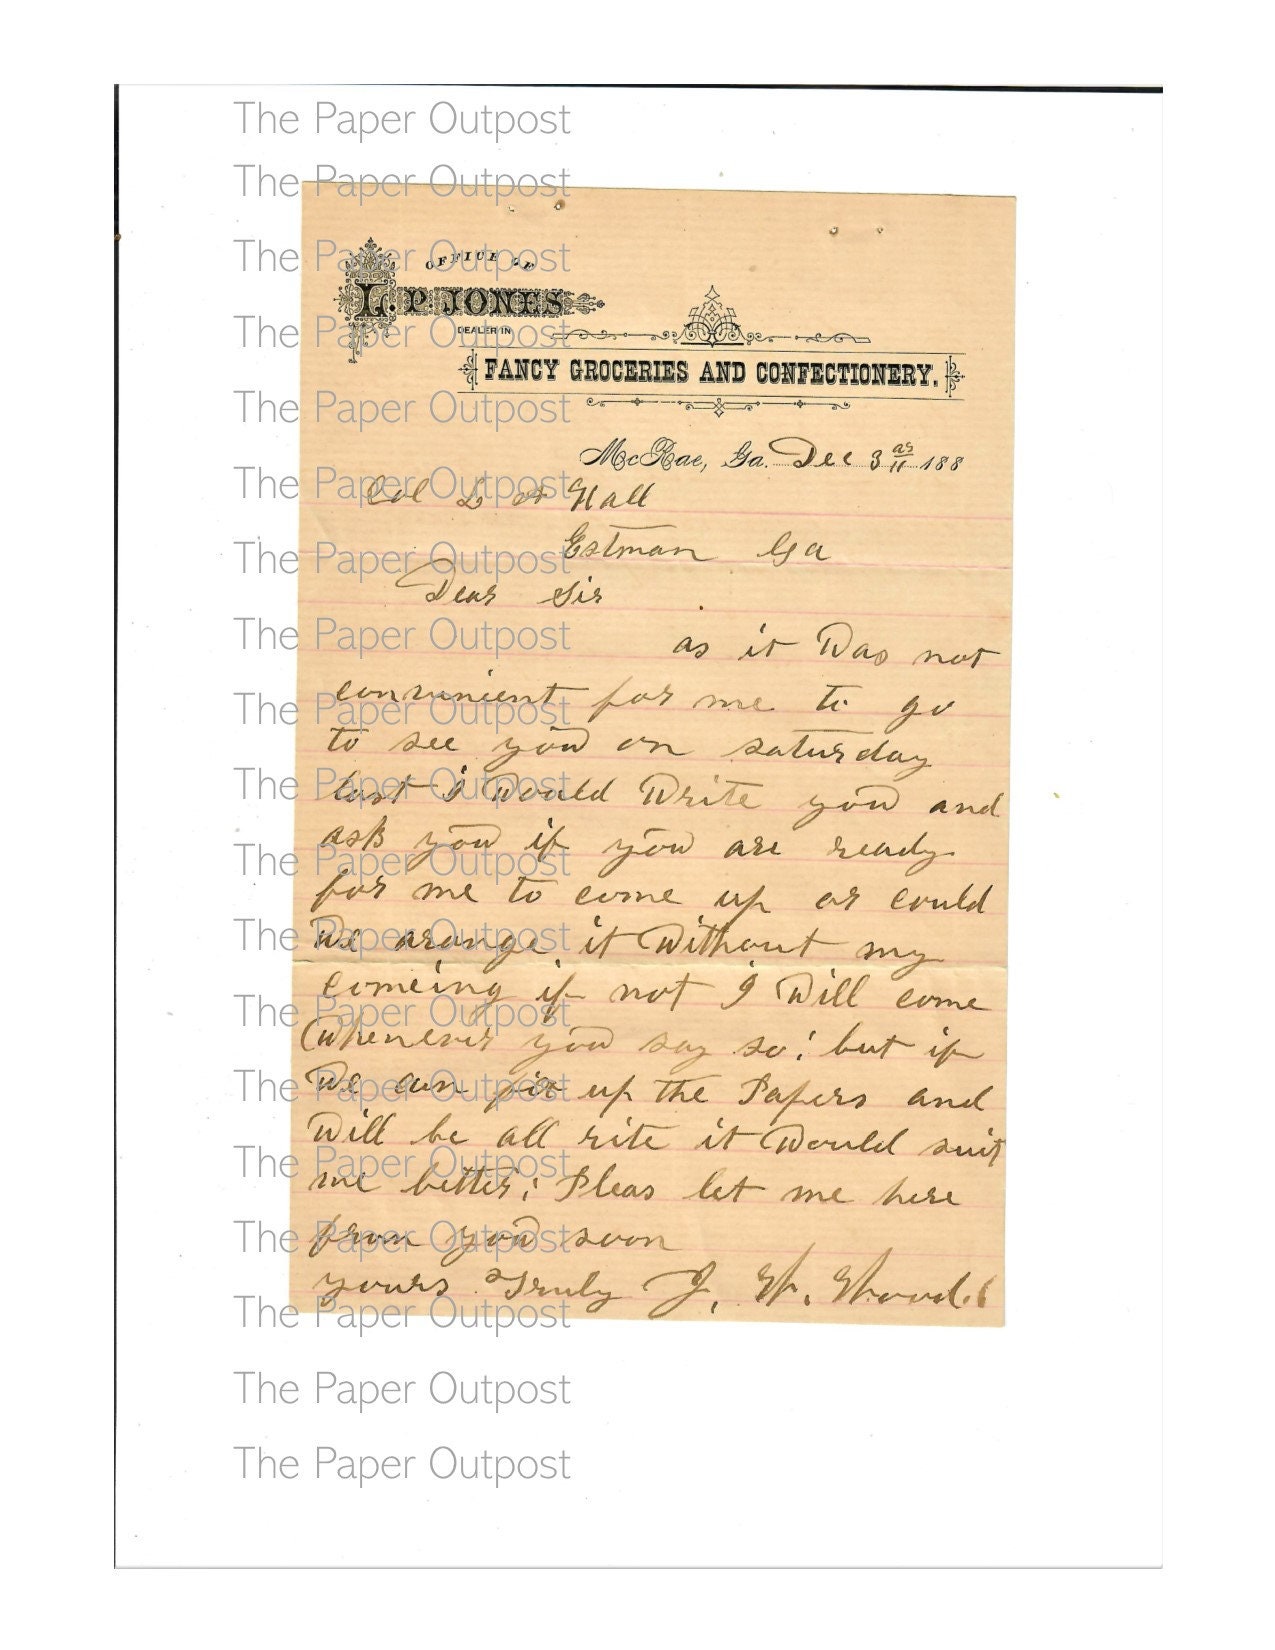 The Paper Outpost
The Paper Outpost
The Paper Outpost
OFFICE OF
L. P. JONES
The Paper Outpost
DEALER IN
FANCY GROCERIES AND CONFECTIONERY.
The Paper Outpost
McRae, Ga. Dec 3 188
The Paper Outpost
Col L Hall
Estman Ga
The Paper Outpost
Dear Sir
The Paper Outpost
as it Was not
convinient for me to go
The Paper Outpost
to see you on saturday
The Paper Outpost
last I Would Write you and
ask you if you are ready
The Paper Outpost
for me to come up or could
The Paper Outpost
We arange it Without my
comeing if not I Will come
The Paper Outpost
Whenever you say so; but if
The Paper Outpost
We can fix up the Papers and
Will be all rite it Would suit
The Paper Outpost
me better; Pleas let me here
The Paper Outpost
from you soon
yours Truly J. W. Wood
The Paper Outpost
The Paper Outpost
The Paper Outpost